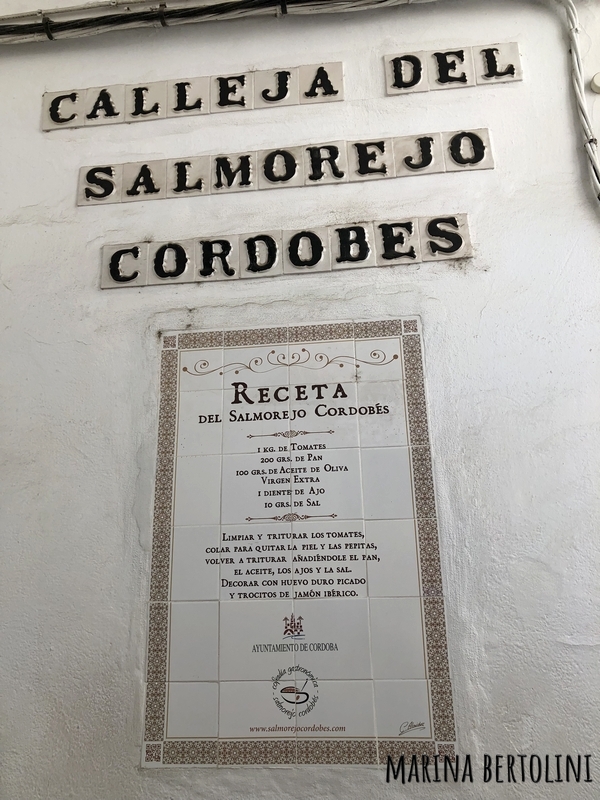 CALLEJA DEL
SALMOREJO
CORDOBES
RECETA
DEL SALMOREJO CORDOBÉS
1 KG. DE TOMATES
200 GRS. DE PAN
100 GRS. DE ACEITE DE OLIVA
VIRGEN EXTRA
1 DIENTE DE AJO
10 GRS. DE SAL
LIMPIAR Y TRITURAR LOS TOMATES,
COLAR PARA QUITAR LA PIEL Y LAS PEPITAS,
VOLVER A TRITURAR AÑADIÉNDOLE EL PAN,
EL ACEITE, LOS AJOS Y LA SAL.
DECORAR CON HUEVO DURO PICADO
Y TROCITOS DE JAMÓN IBÉRICO.
AYUNTAMIENTO DE CORDOBA
cofradía gastronómica
salmorejo cordobés
www.salmorejocordobes.com
MARINA BERTOLINI